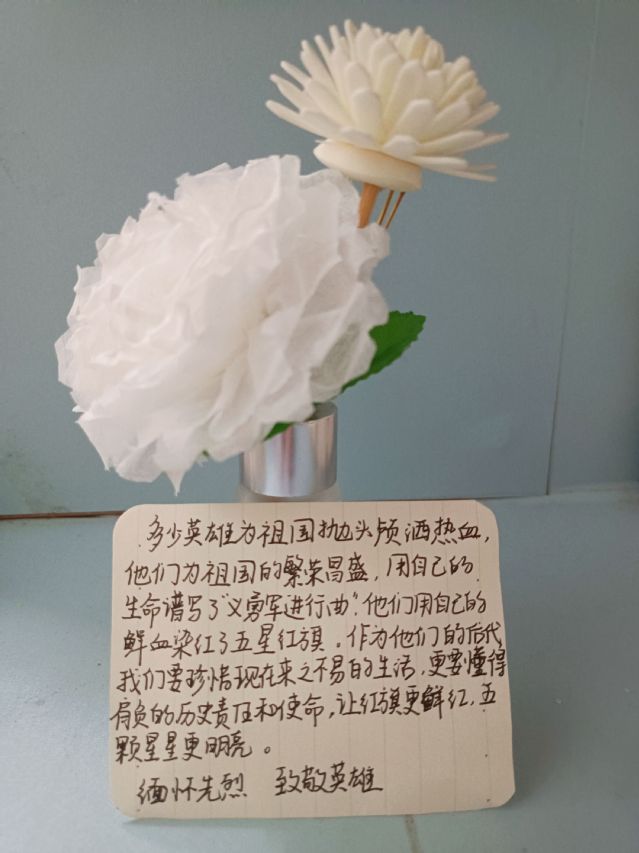 多少英雄为祖国抛头颅洒热血，
他们为祖国的繁荣昌盛，用自己的
生命谱写了"义勇军进行曲"。他们用自己的
鲜血染红了五星红旗。作为他们的后代
我们要珍惜现在来之不易的生活，更要懂得
肩负的历史责任和使命，让红旗更鲜红，五
颗星星更明亮。
缅怀先烈 致敬英雄